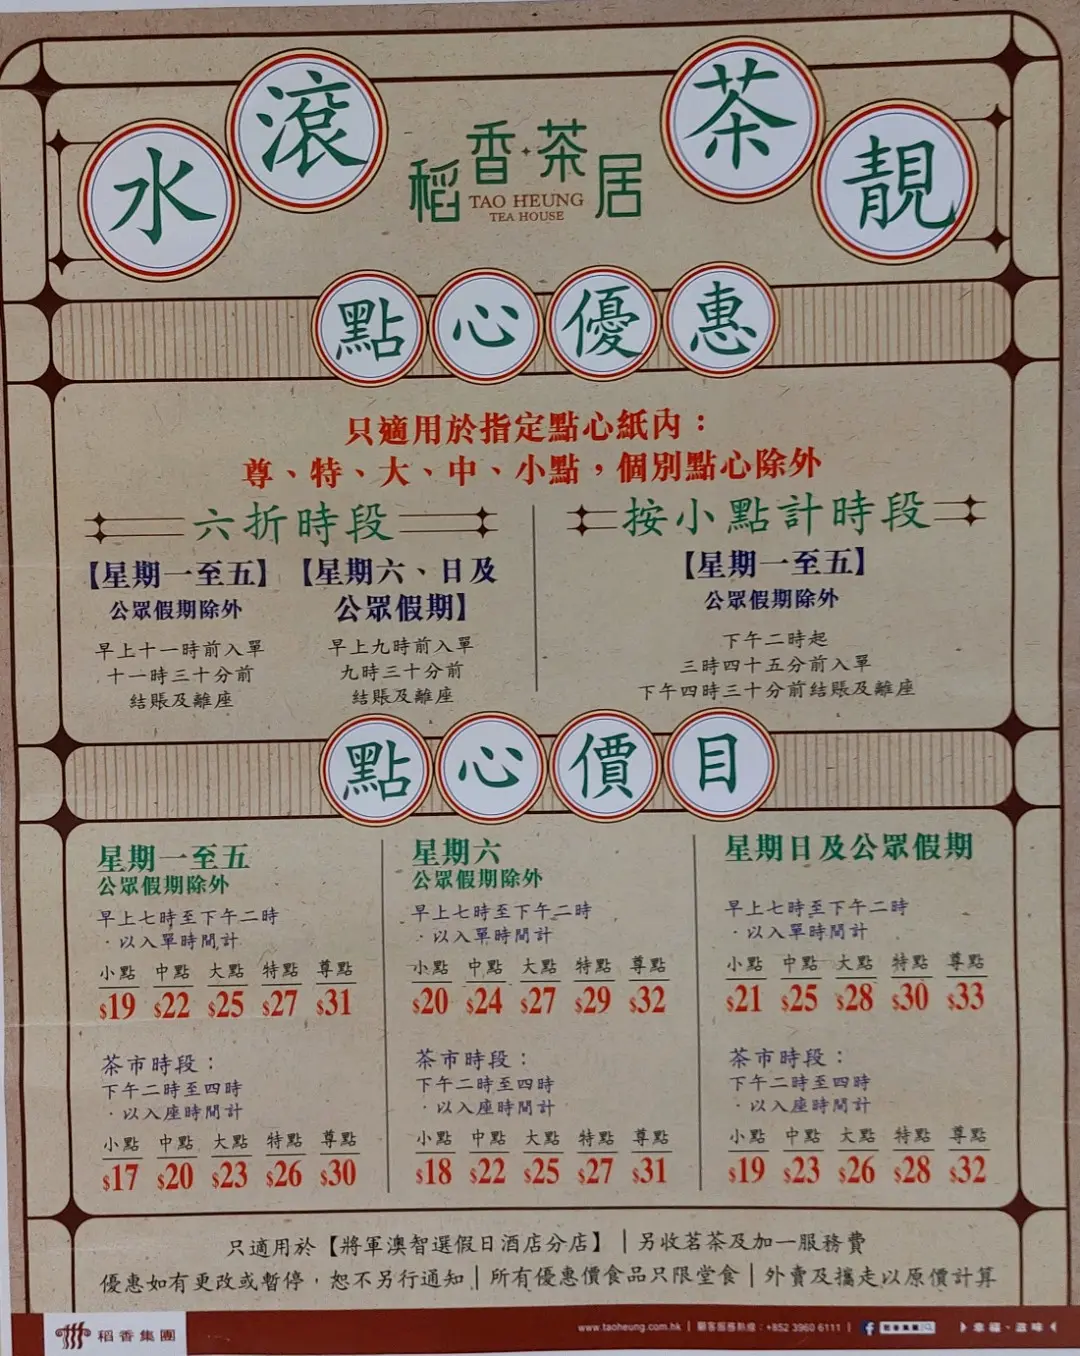 水滾茶靚
稻香茶居
TAO HEUNG
TEA HOUSE
點心優惠
只適用於指定點心紙內：
尊、特、大、中、小點，個別點心除外
六折時段
【星期一至五】
公眾假期除外
早上十一時前入單
十一時三十分前
結賬及離座
【星期六、日及
公眾假期】
早上九時前入單
九時三十分前
結賬及離座
按小點計時段
【星期一至五】
公眾假期除外
下午二時起
三時四十五分前入單
下午四時三十分前結賬及離座
點心價目
星期一至五
公眾假期除外
早上七時至下午二時
·以入單時間計
小點 中點 大點 特點 尊點
$19 $22 $25 $27 $31
茶市時段：
下午二時至四時
·以入座時間計
小點 中點 大點 特點 尊點
$17 $20 $23 $26 $30
星期六
公眾假期除外
早上七時至下午二時
·以入單時間計
小點 中點 大點 特點 尊點
$20 $24 $27 $29 $32
茶市時段：
下午二時至四時
·以入座時間計
小點 中點 大點 特點 尊點
$18 $22 $25 $27 $31
星期日及公眾假期
早上七時至下午二時
·以入單時間計
小點 中點 大點 特點 尊點
$21 $25 $28 $30 $33
茶市時段：
下午二時至四時
·以入座時間計
小點 中點 大點 特點 尊點
$19 $23 $26 $28 $32
只適用於【將軍澳智選假日酒店分店】｜另收茗茶及加一服務費
優惠如有更改或暫停，恕不另行通知｜所有優惠價食品只限堂食｜外賣及攜走以原價計算
稻香集團
www.taoheung.com.hk｜顧客服務熱線：+852 3960 6111｜稻香集團 幸福·滋味